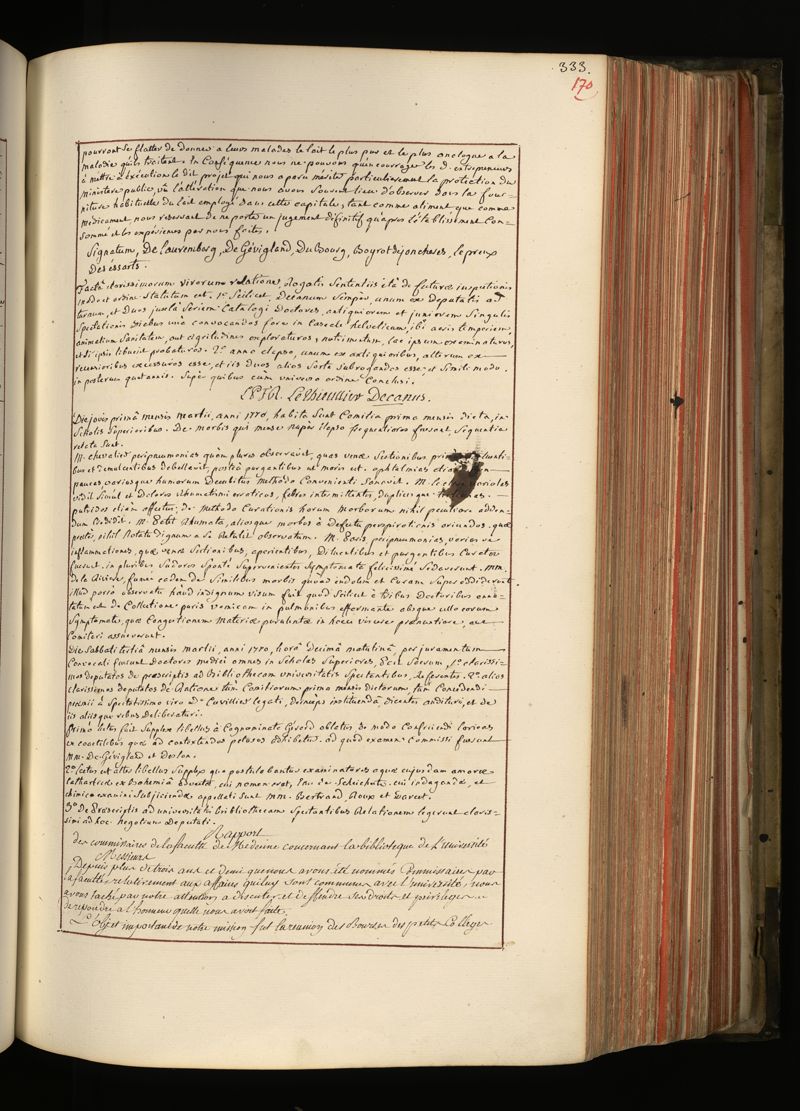 333.
170
pourront se flatter de donner a leurs malades le lait le plus pur et le plus analogue a la
maladie qu'ils traitent. In Conséquence nous ne pouvons qu'encourager les d. entrepreneurs
à mettre à exécution le dit projet qui nous a paru mériter particulierement la protection du
Ministere public, vû l'altération que nous avons souvent lieu d'observer dans la four=
niture habituelle du lait employé dans cette capitale, tant comme aliment que comme
médicament nous reservant de ne porter un jugement définitif qu'apres l'établissement Con=
sommé et les expériences par nous faites.
Signatum, De Lauremberg, De Gévigland, Du Bourg, Boyrot de joncheres, le preux
Des essarts.
Factâ clarissimorum virorum relatione, Rogatis Sententiis etâ de futuræ inspectionis
modo et ordine Statutum est. 1° Scilicet, Decanum Semper, unum ex Deputatis ad
ternum, et Duos juxtà Seriem Catalogi Doctores, antiquiorem et juniorem Singulis
Spectationis Diebus viâ convocandos fore in helveticam, ibi aeris temperiem,
animalium Sanitatem, aut ægritudines exploraturos, nutrimentum, lac ipsum examinaturos,
et Si ipsis libuerit probaturos. 2° anno elapso, unum ex antiquioribus, alterum ex
recensioribus excessuros esse, et iis duos alios Sorte Subrogandos esse et Simili modo
in posterum quotannis. Supe quibus cum universo ordine Conclusi.
Le Thieullier Decanus.
Die jovis primâ mensis martii, anni 1770, habita Sunt Comitia prima mensis Dicta, in
Scholis Superioribus. De morbis qui mense Nuper elapso frequentiores fuerunt, Sequentia
relata Sunt.
M. chevalier peripneumonias quàm plures observavit, quas venæ Sectionibus
bus et Demulcentibus debellavit, posteà purgantibus ut moris est. ophtalmias
pauces, variosque humorum Decubitus methodo Convenienti Sanavit. M. le variolas
vidit Simul et Dolores Rhumatismi erraticos, febres intermittentes, duplicesque
putridos etiam affectus; De methodo Curationis horum morborum nihil peculiare adden=
dum Credidit. M. Petit Rhumata, aliosque morbos à Defectu perspirationis oriundos. quæ
preter, nihil Notatu dignum a Se Relatis observatum. M. peripneumonias, varias ve
inflammationes, quæ venæ Sectionibus, aperientibus, Diluentibus et purgantibus Curatæ
fuerunt. in pluribus Sudores Sponte Supervenientes Symptomata felicissimè Sedaverunt. MM.
De la Riviere, eadem de Similibus morbis quoad indolem et Curam Superaddiderunt
illud porrò observatu haud indignum visum fuit quod Scilicet à tribus Doctoribus anno=
tatum est de Collectione puris vomicam in pulmonibus efformante absque ullo eorum
Symptomate, quæ Congestionem Materiæ purulentæ in hocce viscere præmunire, aut
Comitari assueverunt.
Die Sabbati tertiâ mensis martii, anni 1770, horâ Decimâ matutinâ, per juramentum
Convocati fuerunt Doctores medici omnes in Scholas Superiores, post Sacrum, 1° clarissi=
mos deputatos de præscriptis ad Bibliothecam universitatis Spectantibus, Referentes. 2° alios
clarissimos deputatos de Ratione tùm Comitiorum prima mensis dictorum, tùm Concedendi
præmii à Spectatissimo viro D. Cuvillier legati, Deinceps instituendâ Dicentes audituri, et de
iis aliisque rebus Deliberaturi.
Primò lectus fuit Supplex libellus à Cognominato Gerard oblatus de modo Conficiendi
ex coactilibus quæ ad contextendos petasos adhibetur. ad quod examen Commissi fuerunt
MM. De Gevigland et Deslon.
2° Lectus et alter libellus Supplex quo postulabantur examinatores aquæ cujusdam amaræ
Catharticæ ex Bohemiâ advectæ, cui nomen erat, Eau de Seidchutz. cui indagandæ, et
chimico examini Subjiciendæ appellati Sunt MM. Bertrand, Roux et Darcet.
3° De Præscriptis ad universitatis Bibliothecam Spectantibus Relationem legerunt claris=
simi ad hoc negotium Deputati.
Rapport
des commissaires de la faculté de Médecine concernant la bibliotèque de l'Université
Messieurs
Depuis plus de trois ans et demi que nous avons été nommés Commissaires par
la faculté relativement aux affaires qui luy sont communes avec l'université, nous
avons taché par notre attention a discuter et deffendre ses droits et privileges
de repondre a l'honneur qu'elle nous avoit faite.
L'Objet important de notre mission fut la reunion des Bourses des petits Colleges